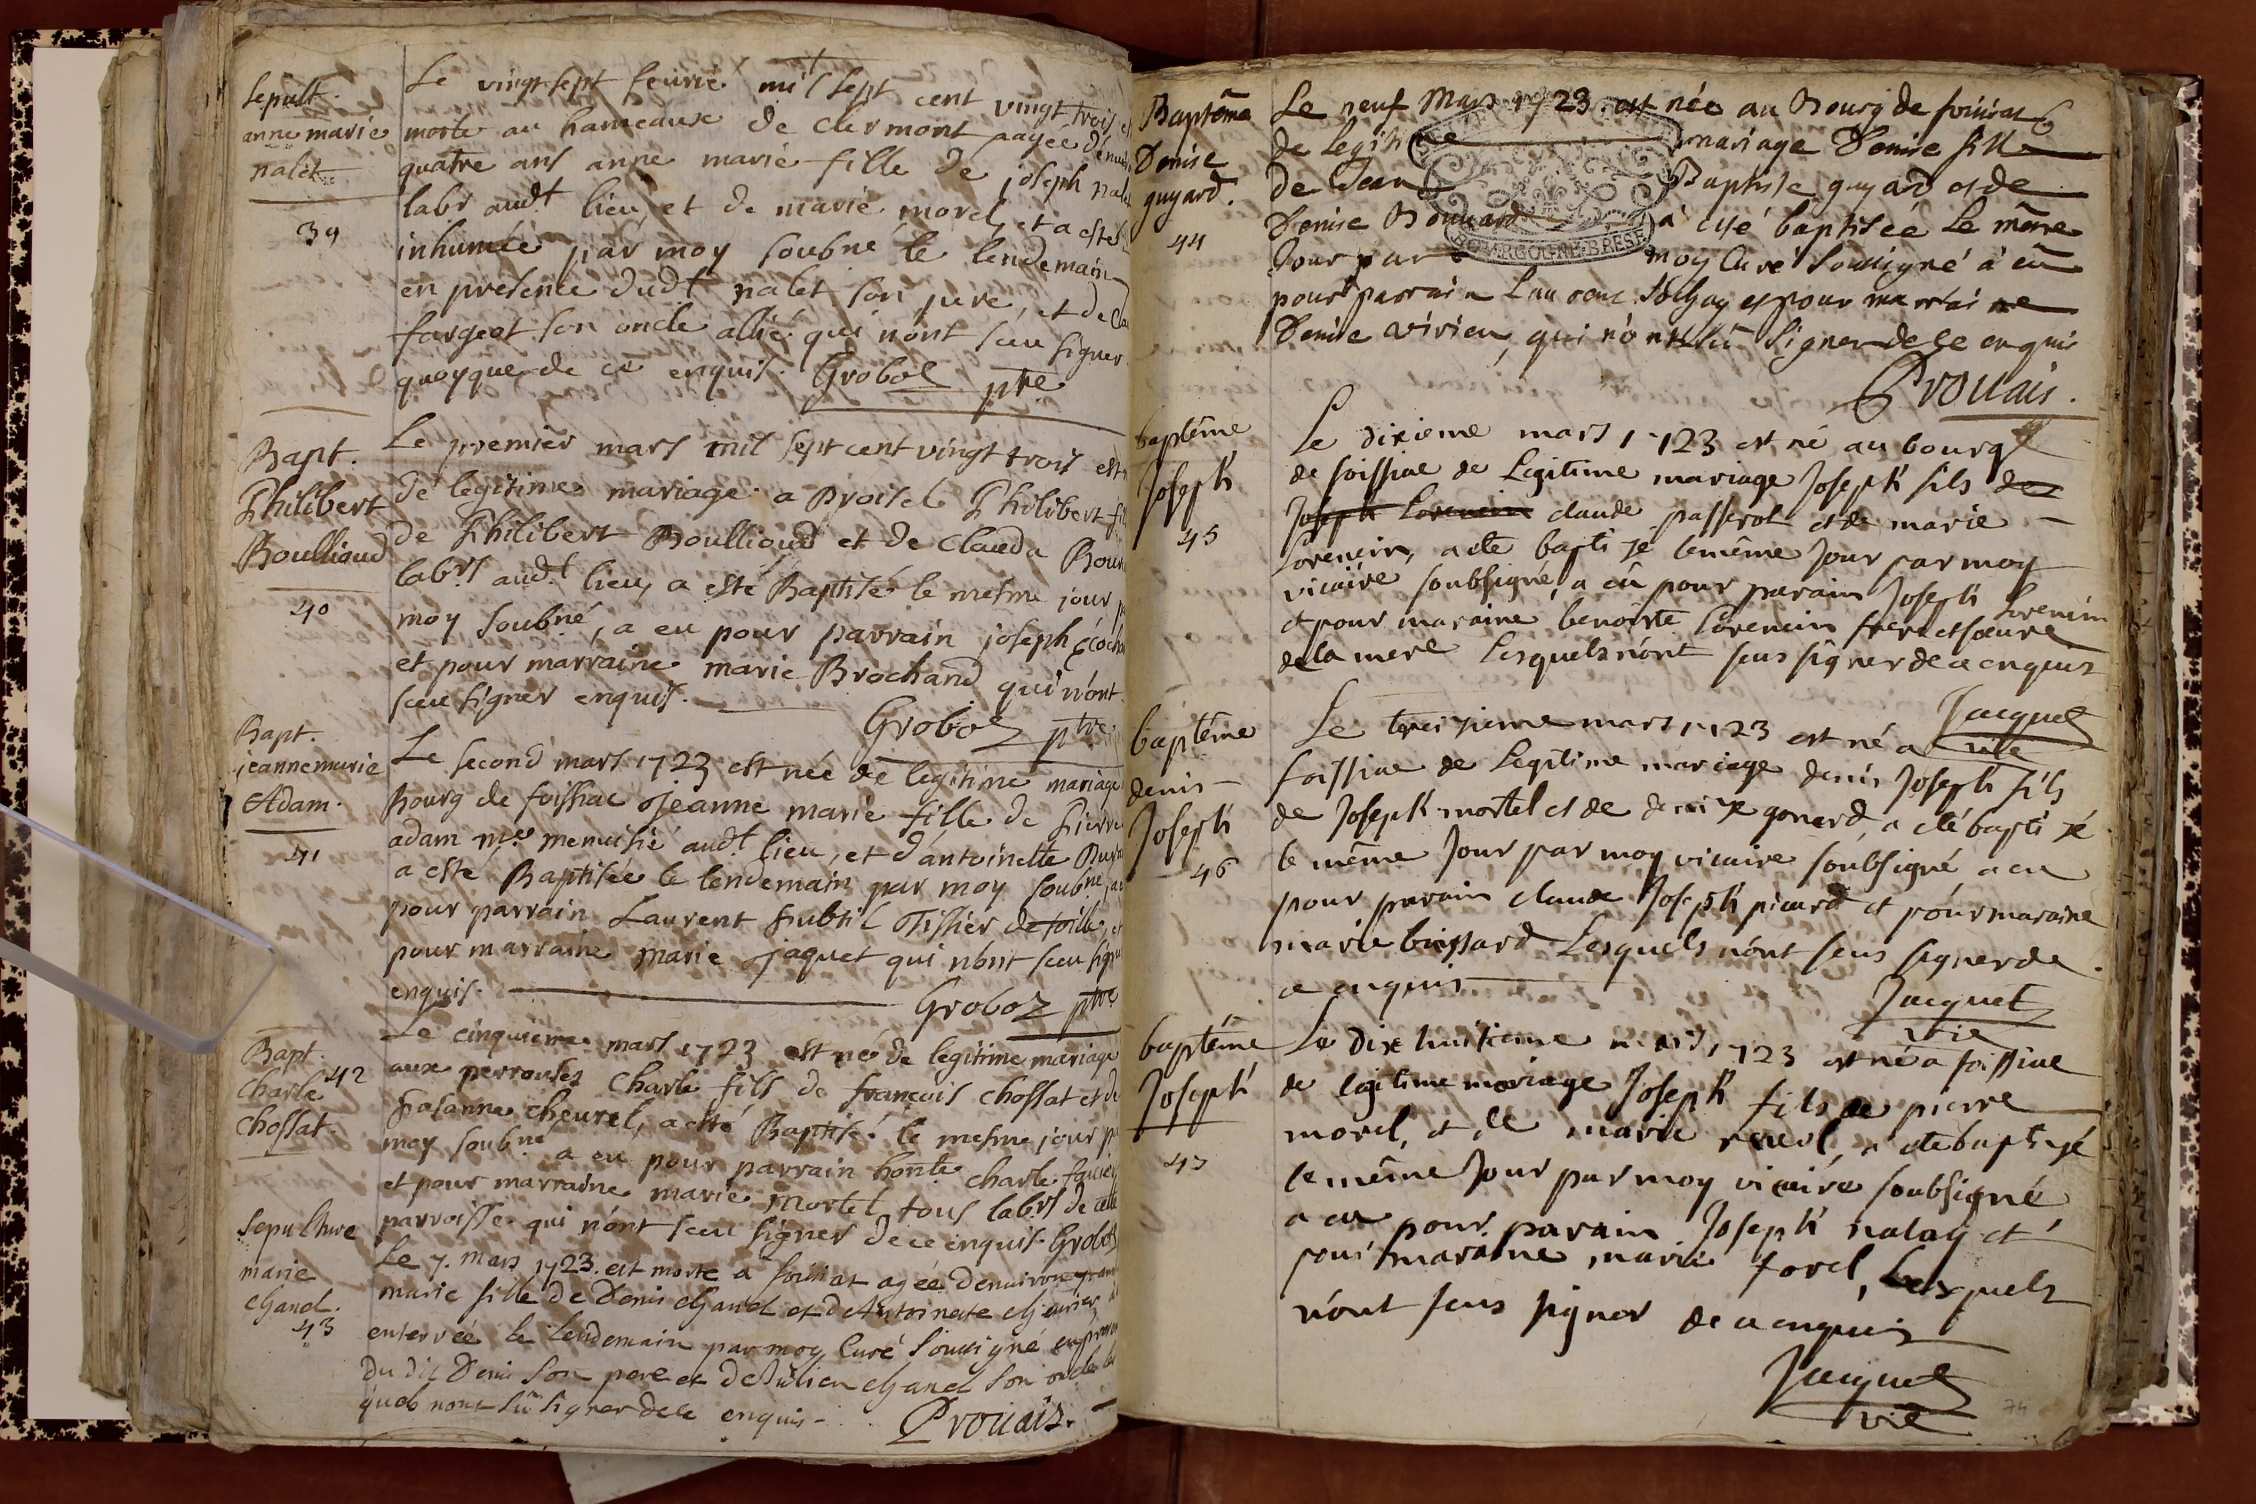 Sepult.
anne marie
nalet
39
Le vingt sept feurié mil sept cent vingt trois
morte au hameaux de clermont aagée
quatre ans anne marie fille de joseph
labr audt lieu, et de marie morel, et a esté
inhumée par moy soubné le lendemain
en presence dudt nalet son pere, et de
fargeot son oncle allié qui n'ont sceu signer
quoyque de ce enquis. Groboz ptre
Bapt.
Philibert
Boullioud
40
Le premier mars mil sept cent vingt trois est
de legitime mariage a Broisel Philibert
de Philibert Boullioud et de Clauda
labrs audt lieu, a esté Baptisé le mesme jour
moy soubné, a eu pour parrain joseph
et pour marraine marie Brochand qui n'ont
sceu signer enquis.
Groboz ptre
Bapt.
jeanne marie
Adam.
41
Le second mars 1723 est née de legitime mariage
Bourg de foissiac jeanne marie fille de Pierre
adam me menuisié audt lieu, et d'antoinette
a esté Baptisée le lendemain par moy soubné,
pour parrain Laurent subtil Tissier de toille, et
pour marraine marie jaquet qui nont sceu
enquis. Groboz ptre
Bapt.
Charle 42
Chossat.
Le cinquieme mars 1723 est né de legitime mariage
aux perrouses Charle fils de françois Chossat et de
susanne cheurel, a esté Baptisé le mesme jour
moy soubné a eu pour parrain honte charle
et pour marraine marie mortel tous labrs de cette
parroisse qui n'ont sceu signer de ce enquis. Groboz
Sepulture
marie
chanel.
43
Le 7. mars 1723. est morte a foissiat agée denuiron
marie fille de Denis chanel et d'Antoinette
enterrée le lendemain par moy Curé soussigné
du dit Denis son pere et de Julien chanel son oncle
quels nont sû signer de ce enquis.
Prouais.
Baptême
Denise
guyard.
44
Le neuf Mars 1723. est née au Bourg de foissiat
de legitime mariage Denise fille
de Jean Baptiste guyard et de
Denise Bouuard à esté baptisée le même
Jour par moy Curé soussigné à eû
pour parrain Laurent et pour marraine
Denise vivien, qui n'ont sû signer de ce enquis
BOURGOGNE BRESSE
Prouais.
baptême
Joseph
45
Le dixieme mars 1723 est né au bourg
de foissiac de Legitime mariage Joseph fils de
Joseph Lorencin claude passerat et de marie
Lorencin, a ete baptisé le même Jour par moy
vicaire soubsigné, a eû pour parain Joseph Lorencin
et pour maraine benoiste Lorencin frere et sœure
de la mere Lesquels n'ont seus signer de ce enquis
Jacquet
vic
baptême
denis
Joseph
46
Le treisieme mars 1723 est né a
foissiac de Legitime mariage denis Joseph fils
de Joseph mortel et de denise gonard, a eté baptisé
le même Jour par moy vicaire soubsigné, a eu
pour parain claude Joseph picard et pour maraine
marie buissard Lesquels n'ont seus signer de
ce enquis
Jacquet
vic
baptême
Joseph
47
Le dix huitieme mars 1723 est né a foissiac
de legitime mariage Joseph fils de pierre
morel, et de marie revel, a ete baptisé
le même Jour par moy vicaire soubsigné
a eu pour parain Joseph nalay et
pour maraine marie forel, Lesquels
n'ont seus signer de ce enquis
Jacquet
vic
74